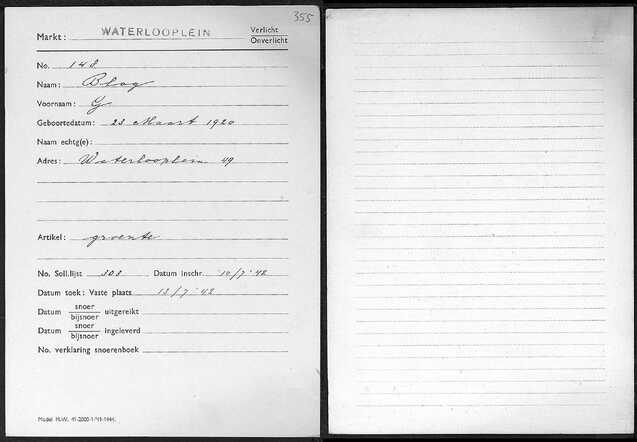 355
Markt: WATERLOOPLEIN Verlicht
Onverlicht
No. 148
Naam: Blog
Voornaam: G
Geboortedatum: 23 Maart 1920
Naam echtg(e):
Adres: Waterlooplein 49
Artikel: groente
No. Soll.lijst 303 Datum inschr. 10/7 '42
Datum toek: Vaste plaats 13/7 '42
Datum snoer uitgereikt
bijsnoer
Datum snoer ingeleverd
bijsnoer
No. verklaring snoerenboek
Model M.W.